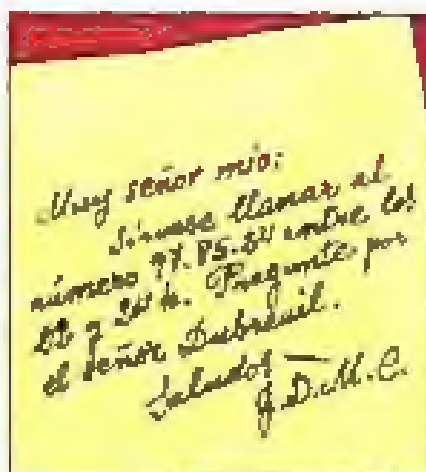 Muy señor mío:
Sírvase llamar al
número 97.85.24 entre las
y 24 h. Pregunte por
el señor Dubreuil.
Saludos
J.D.M.C.